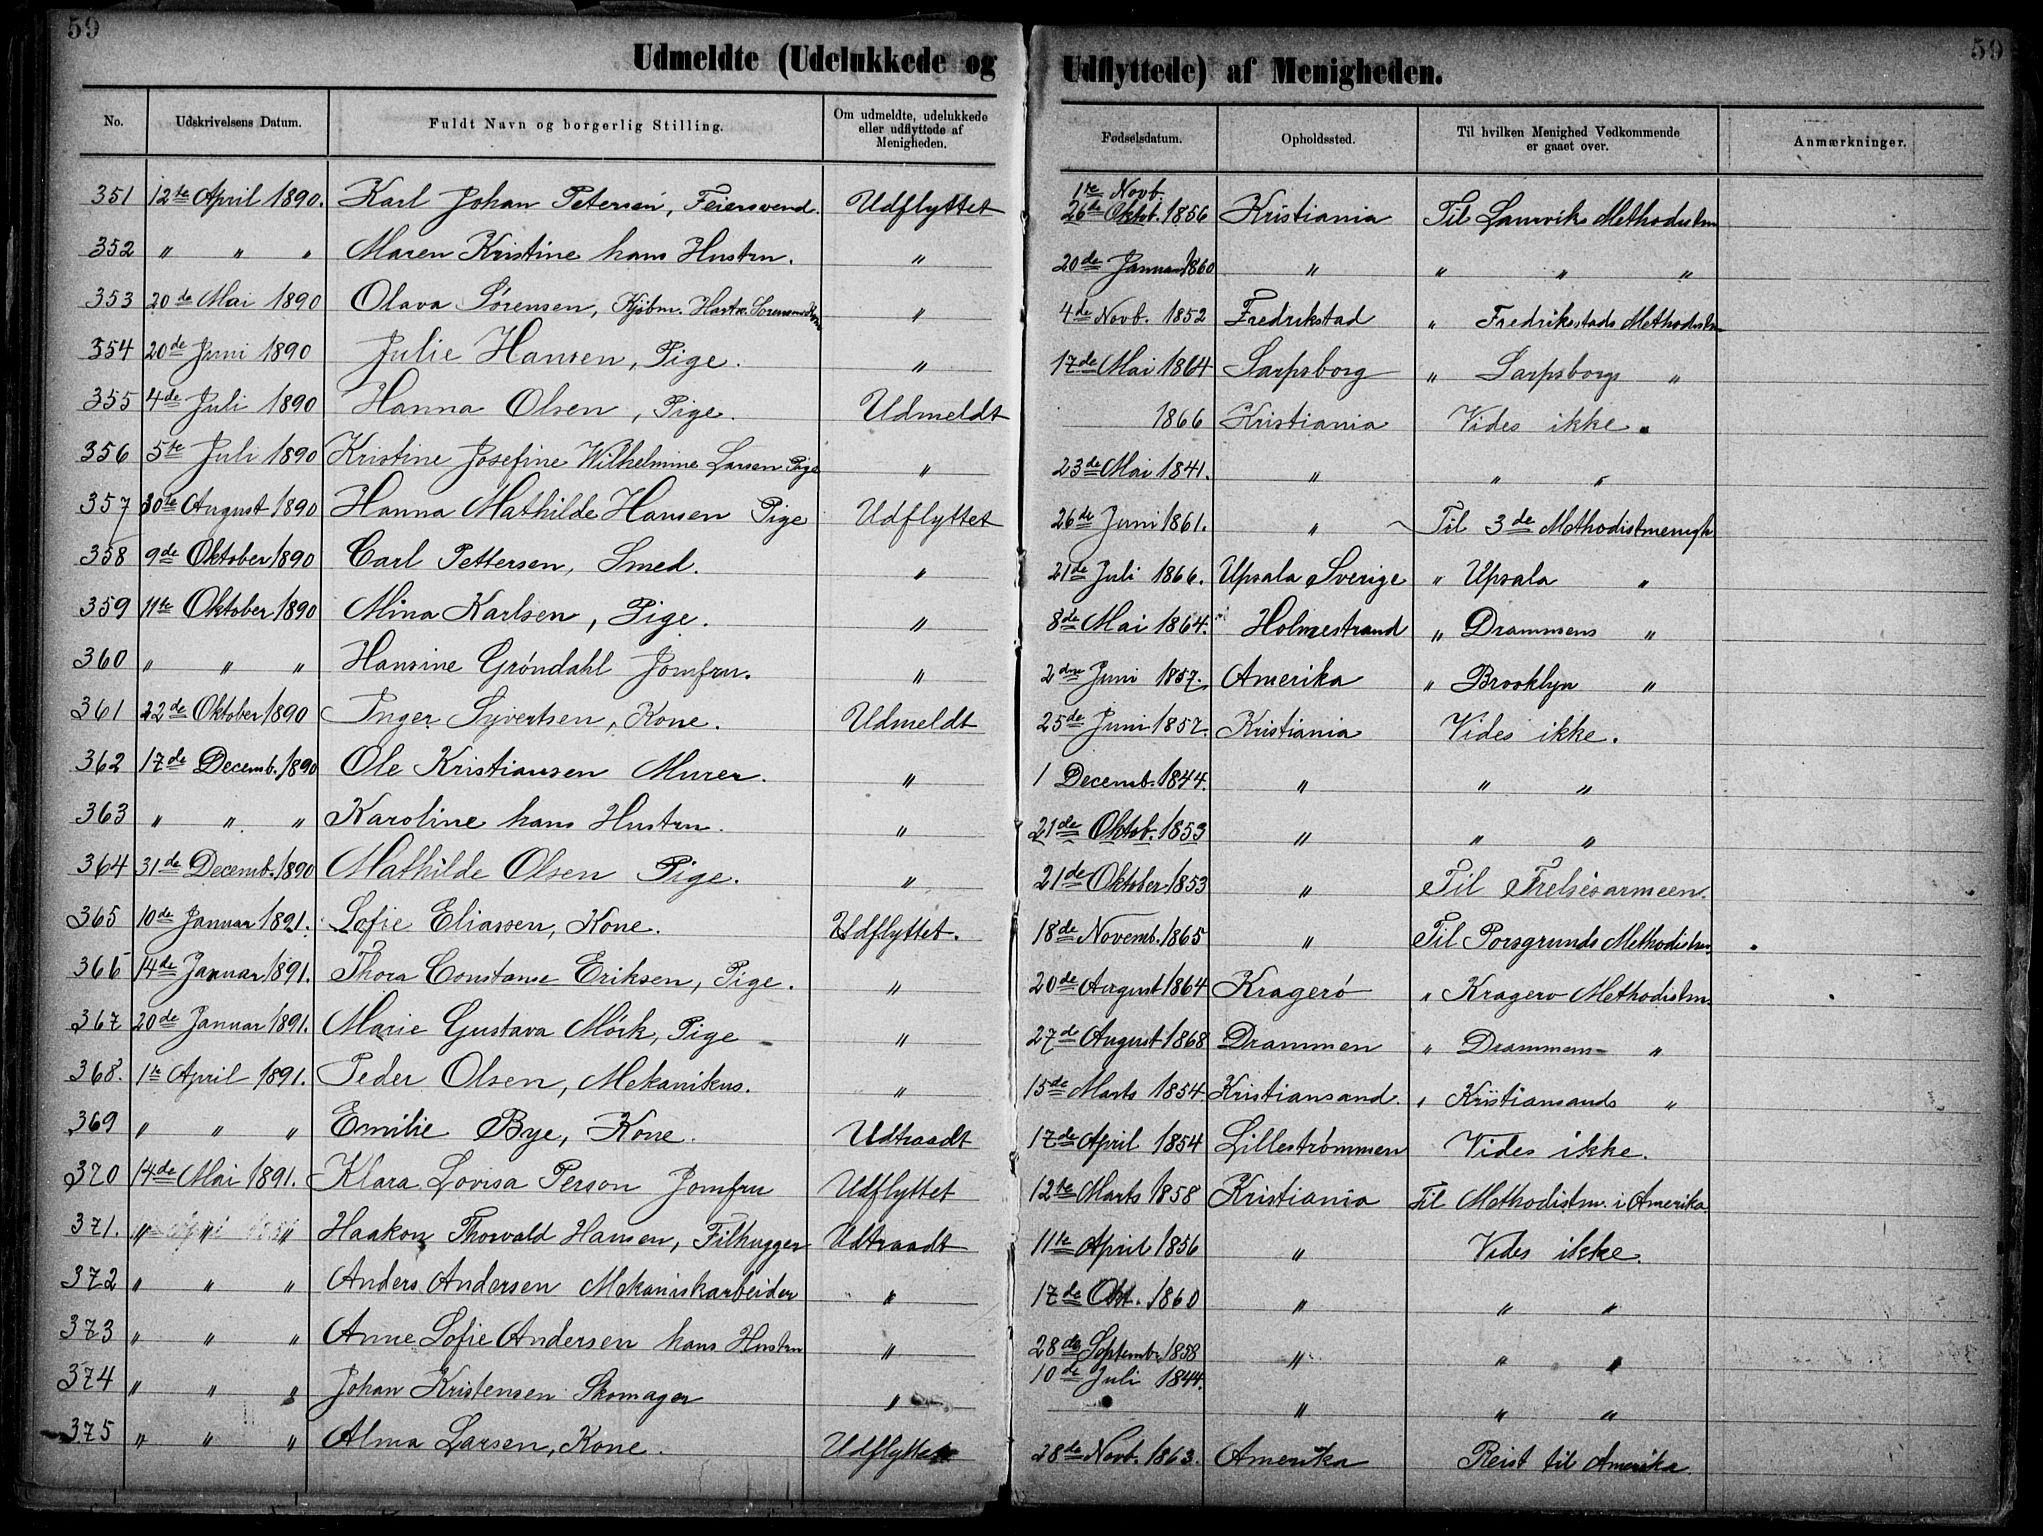 59
59
Udmeldte (Udelukkede og Udflyttede) af Menigheden.
No. Udskrivelsens Datum. Fuldt Navn og borgerlig Stilling. Om udmeldte, udelukkede eller udflyttede af Menigheden. Fødselsdatum. Opholdssted. Til hvilken Menighed Vedkommende er gaaet over. Anmærkninger.
1te Novb.
351 12te April 1890. Karl Johan Petersen, Feiersvend. Udflyttet 26de Oktob. 1856 Kristiania Til Laurviks Methodistm
352 " " " Maren Kristine hans Hustru. " 20de Januar 1860 " " " "
353 20de Mai 1890 Olava Sørensen, Kjøbm. Sørensens " 4de Novb. 1852 Fredrikstad " Fredriksstads Methodistm
354 20de Juni 1890 Julie Hansen, Pige. " 17de Mai 1864 Sarpsborg " Sarpsborgs "
355 4de Juli 1890 Hanna Olsen, Pige. Udmeldt 1866 Kristiania Vides ikke.
356 5te Juli 1890 Kristine Josefine Wilhelmine Larsen Pige " 23de Mai 1841. " " "
357 30te August 1890 Hanna Mathilde Hansen Pige Udflyttet 26de Juni 1861. " Til 3de Methodistmenigh
358 9de Oktober 1890 Carl Pettersen, Smed. " 21de Juli 1866. Upsala Sverige " Upsala "
359 11te Oktober 1890 Mina Karlsen, Pige. " 8de Mai 1864. Holmestrand " Drammens "
360 " " " Hansine Grøndahl Jomfru. " 2den Juni 1857. Amerika " Brooklyn "
361 22de Oktober 1890 Inger Syvertsen, Kone. Udmeldt 25de Juni 1857. Kristiania Vides ikke.
362 17de Decemb. 1890 Ole Kristiansen Murer. " 1 Decemb. 1844. " " "
363 " " " Karoline hans Hustru. " 21de Oktob. 1853 " " "
364 31de Decemb. 1890 Mathilde Olsen Pige. " 21de Oktober 1853 " Til Frelsesarmeen.
365 10de Januar 1891. Sofie Eliassen, Kone. Udflyttet. 18de Novemb. 1865 " Til Porsgrunds Methodistm
366 14de Januar 1891. Thora Constanse Eriksen, Pige. " 20de August 1864 Kragerø " Kragerø Methodistm.
367 20de Januar 1891. Marie Gustava Mörk, Pige " 27de August 1868 Drammen " Drammens "
368. 1te April 1891. Peder Olsen, Mekanikus. " 15de Marts 1854 Kristiansand. " Kristiansands "
369 " " " Emilie Bye, Kone. Udtraadt 17de April 1854 Lillestrømmen Vides ikke.
370 14de Mai 1891. Klara Lovisa Person Jomfru Udflyttet 12te Marts 1858 Kristiania Til Methodistm. i Amerika.
371. " " " Haakon Thorvald Hansen, Filhugger Udtraadt 11te April 1856 " Vides ikke.
372 " " " Anders Andersen Mekaniskarbeider " 17de Okt. 1860 " " "
373 " " " Anne Sofie Andersen hans Hustru " 28de Septemb. 1858 " " "
374 " " " Johan Kristensen Skomager " 10de Juli 1844. " " "
375 " " " Alma Larsen, Kone. Udflyttet 28de Novb. 1863. Amerika Reist til Amerika.